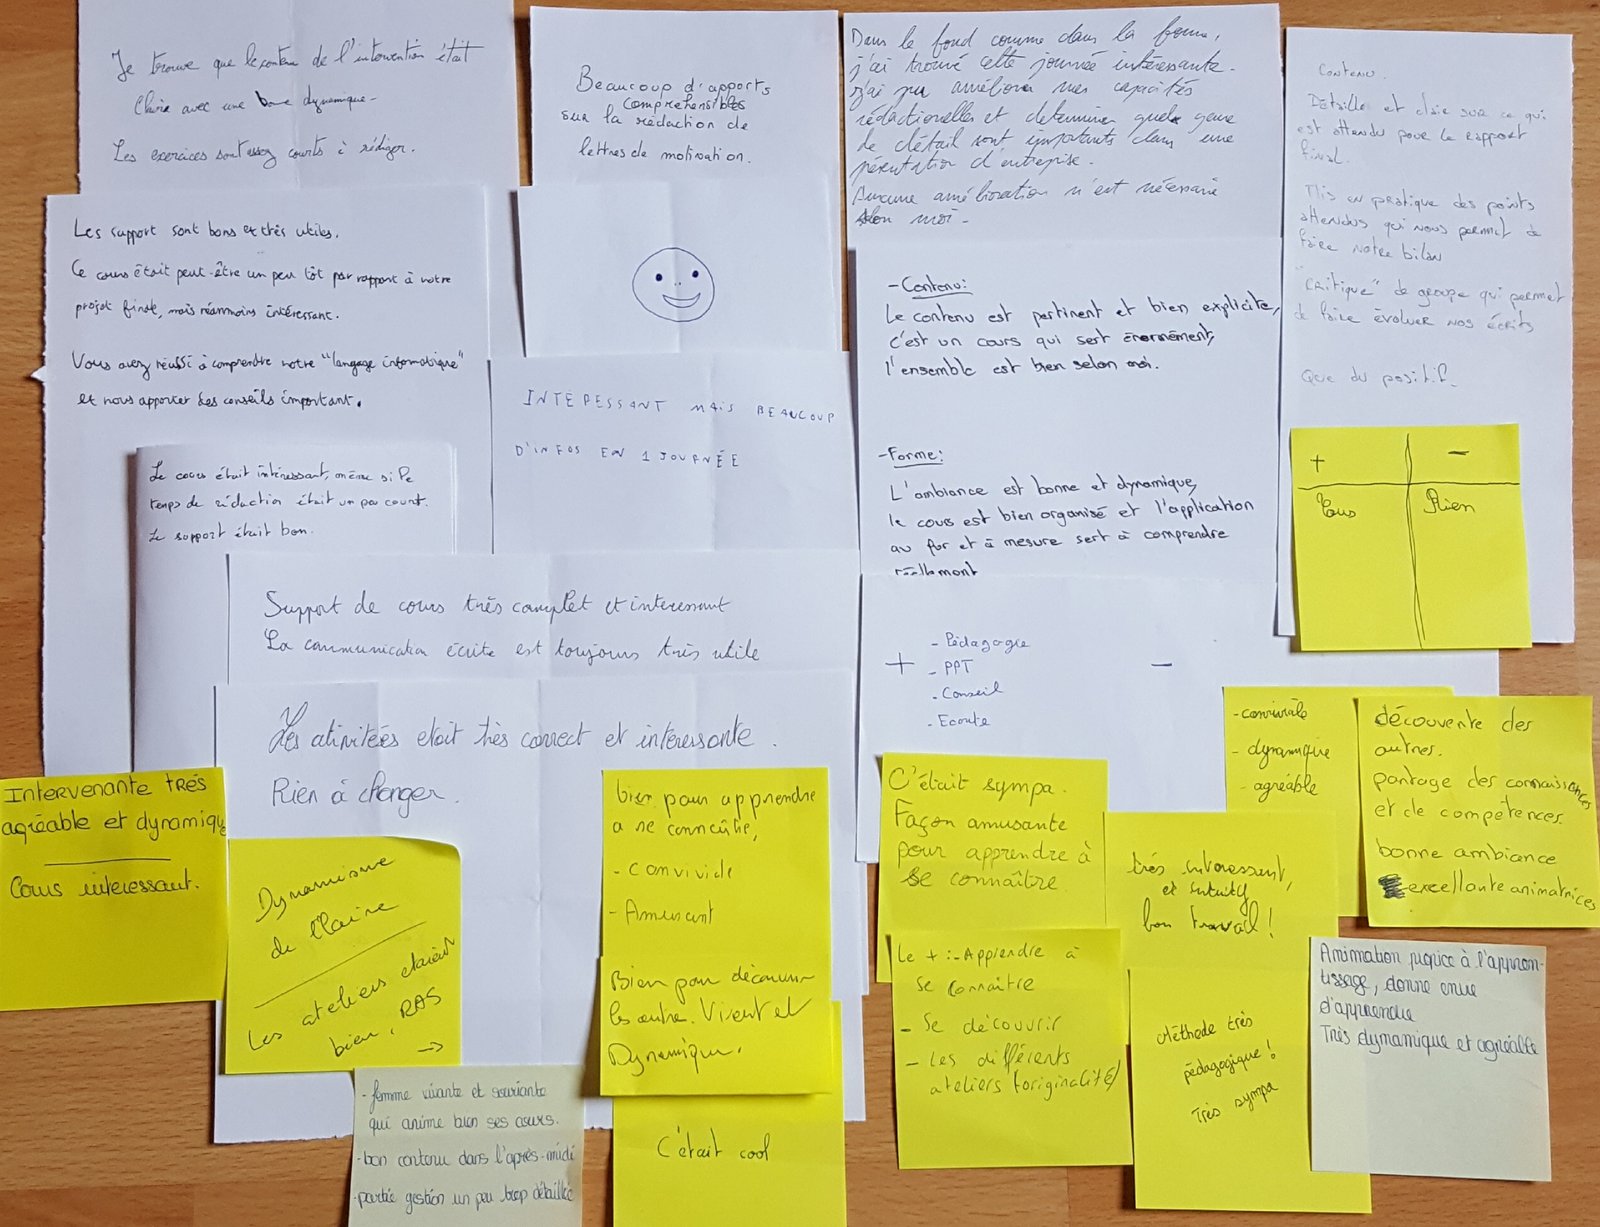 Je trouve que le contenu de l'intervention était
claire avec une bonne dynamique.
Les exercices sont assez courts à rédiger.
Beaucoup d'apports
compréhensibles
sur la rédaction de
lettres de motivation.
Dans le fond comme dans la forme,
j'ai trouvé cette journée intéressante.
j'ai pu améliorer mes capacités
rédactionelles et determiner quels genre
de détail sont importants dans une
pésentation d'entreprise.
Aucune amélioration n'est nécessaire
selon moi.
Contenu.
Détaille et claire sur ce qui
est attendu pour le rapport
final.
Mis en pratique des points
attendus qui nous permet de
faire notre bilan
"Critique" de groupe qui permet
de faire évoluer nos écrits
Que du positif.
Les support sont bons et très utiles.
Ce cours était peut-être un peu tôt par rapport à notre
projet finale, mais néanmoins intéressant.
Vous avez réussi à comprendre notre "langage informatique"
et nous apporter des conseils important.
INTÉRESSANT MAIS BEAUCOUP
D'INFOS EN 1 JOURNÉE
- Contenu:
Le contenu est pertinent et bien explicite,
c'est un cours qui sert énormément,
l'ensemble est bien selon moi.
- Forme:
L'ambiance est bonne et dynamique,
le cours est bien organisé et l'application
au fur et à mesure sert à comprendre
réellement
+ -
Tous Rien
Le cours était intéressant, même si le
temps de rédaction était un peu court.
Le support était bon.
Support de cours très complet et interessant
La communication écrite est toujours très utile
+ -
- Pédagogie
- PPT
- Conseil
- Ecoute
Les ativitées etait très correct et intéressante.
Rien à changer.
Intervenante trés
agréable et dynamique
Cours interessant.
Dynamisme
de Claire
Les ateliers etaient
bien, RAS
→
bien pour apprendre
a se connaître,
- convivide
- Amusant
Bien pour découvrir
les autre. Vivent et
Dynamique.
C'était cool
- femme vivante et souriante
qui anime bien ses cours.
- bon contenu dans l'après-midi
- partie gestion un peu trop détaillée
C'était sympa.
Façon amusante
pour apprendre à
se connaître.
Le + :- Apprendre à
se connaître
- Se découvrir
- Les différents
ateliers (originalité)
- conviviale
- dynamique
- agréable
découverte des
autres.
partage des connaissances
et de compétences.
bonne ambiance
excellente animatrices
trés interessant,
et
bon travail !
Méthode très
pédagogique !
très sympa
Animation propice à l'appren-
tissage, donne envie
d'apprendre
Très dynamique et agréable